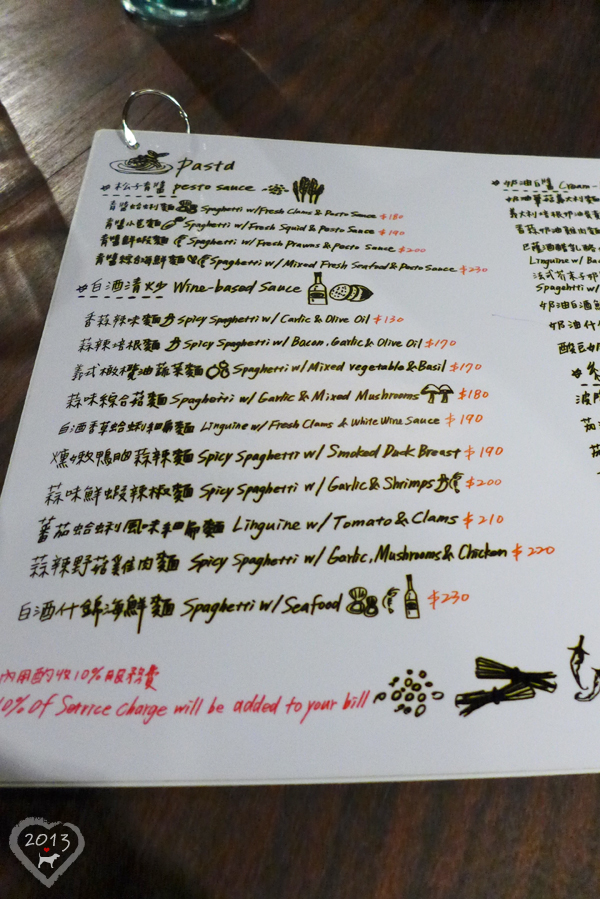 Pasta
松子青醬 pesto sauce
青醬蛤蜊麵 Spaghetti w/Fresh Clams & Pesto Sauce $180
青醬小卷麵 Spaghetti w/ Fresh Squid & Pesto Sauce $190
青醬鮮蝦麵 Spaghetti w/ Fresh Prawns & Pesto Sauce $200
青醬綜合海鮮麵 Spaghetti w/ Mixed Fresh Seafood & Pesto Sauce $230
白酒清炒 Wine-based Sauce
香蒜辣味麵 Spicy Spaghetti w/ Garlic & Olive Oil $130
蒜辣培根麵 Spicy Spaghetti w/ Bacon, Garlic & Olive Oil $170
義式橄欖油蔬菜麵 Spaghetti w/ Mixed vegetable & Basil $170
蒜味綜合菇麵 Spaghetti w/ Garlic & Mixed Mushrooms $180
白酒香草蛤蜊細扁麵 Linguine w/ Fresh Clams & White Wine Sauce $190
燻嫩鴨胸蒜辣麵 Spicy Spaghetti w/ Smoked Duck Breast $190
蒜味鮮蝦辣椒麵 Spicy Spaghetti w/ Garlic & Shrimps $200
蕃茄蛤蜊風味細扁麵 Linguine w/ Tomato & Clams $210
蒜辣野菇雞肉麵 Spicy Spaghetti w/ Garlic, Mushrooms & Chicken $220
白酒什錦海鮮麵 Spaghetti w/ Seafood $230
內用酌收10%服務費
10% of Service charge will be added to your bill
奶油白醬 Cream-
奶油蘑菇義大利麵
義大利培根奶油蛋
Linguine w/ Ba
Spaghetti w/
奶油白酒
奶油什
2013